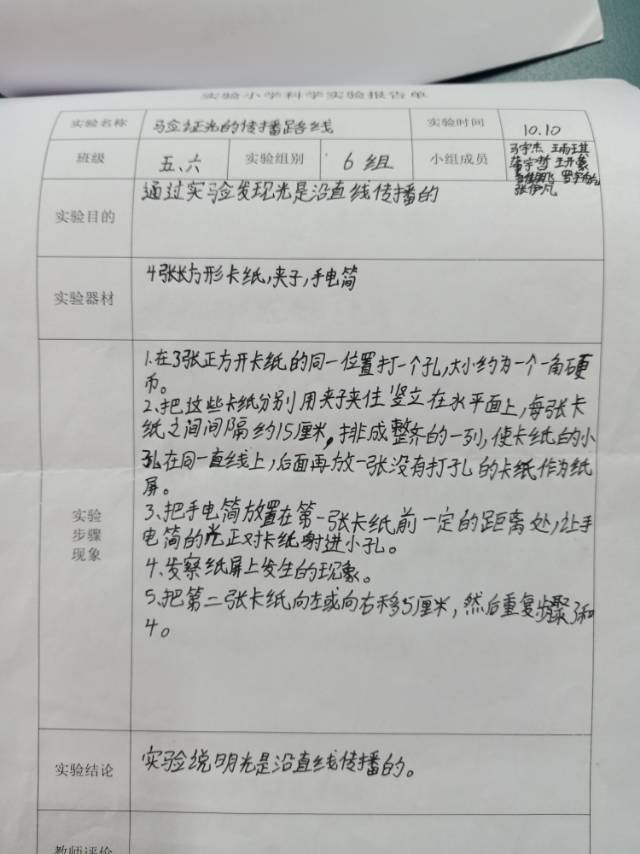 实验小学科学实验报告单
实验名称 验证光的传播路线 实验时间 10.10
班级 五、六 实验组别 6组 小组成员 马宇杰 王雨琪
宇哲 王开
飞 罗
张伊凡
实验目的 通过实验发现光是沿直线传播的
实验器材 4张长方形卡纸,夹子,手电筒
实验
步骤
现象
1.在3张正方开卡纸的同一位置打一个孔,大小约为一个一角硬
币。
2、把这些卡纸分别用夹子夹住竖立在水平面上,每张卡
纸之间间隔约15厘米,排成整齐的一列,使卡纸的小
孔在同一直线上,后面再放一张没有打孔的卡纸作为纸
屏。
3、把手电筒放置在第一张卡纸前一定的距离处,让手
电筒的光正对卡纸射进小孔。
4、发察纸屏上发生的现象。
5、把第二张卡纸向左或向右移5厘米,然后重复步骤3和
4。
实验结论 实验说明光是沿直线传播的。
教师评价